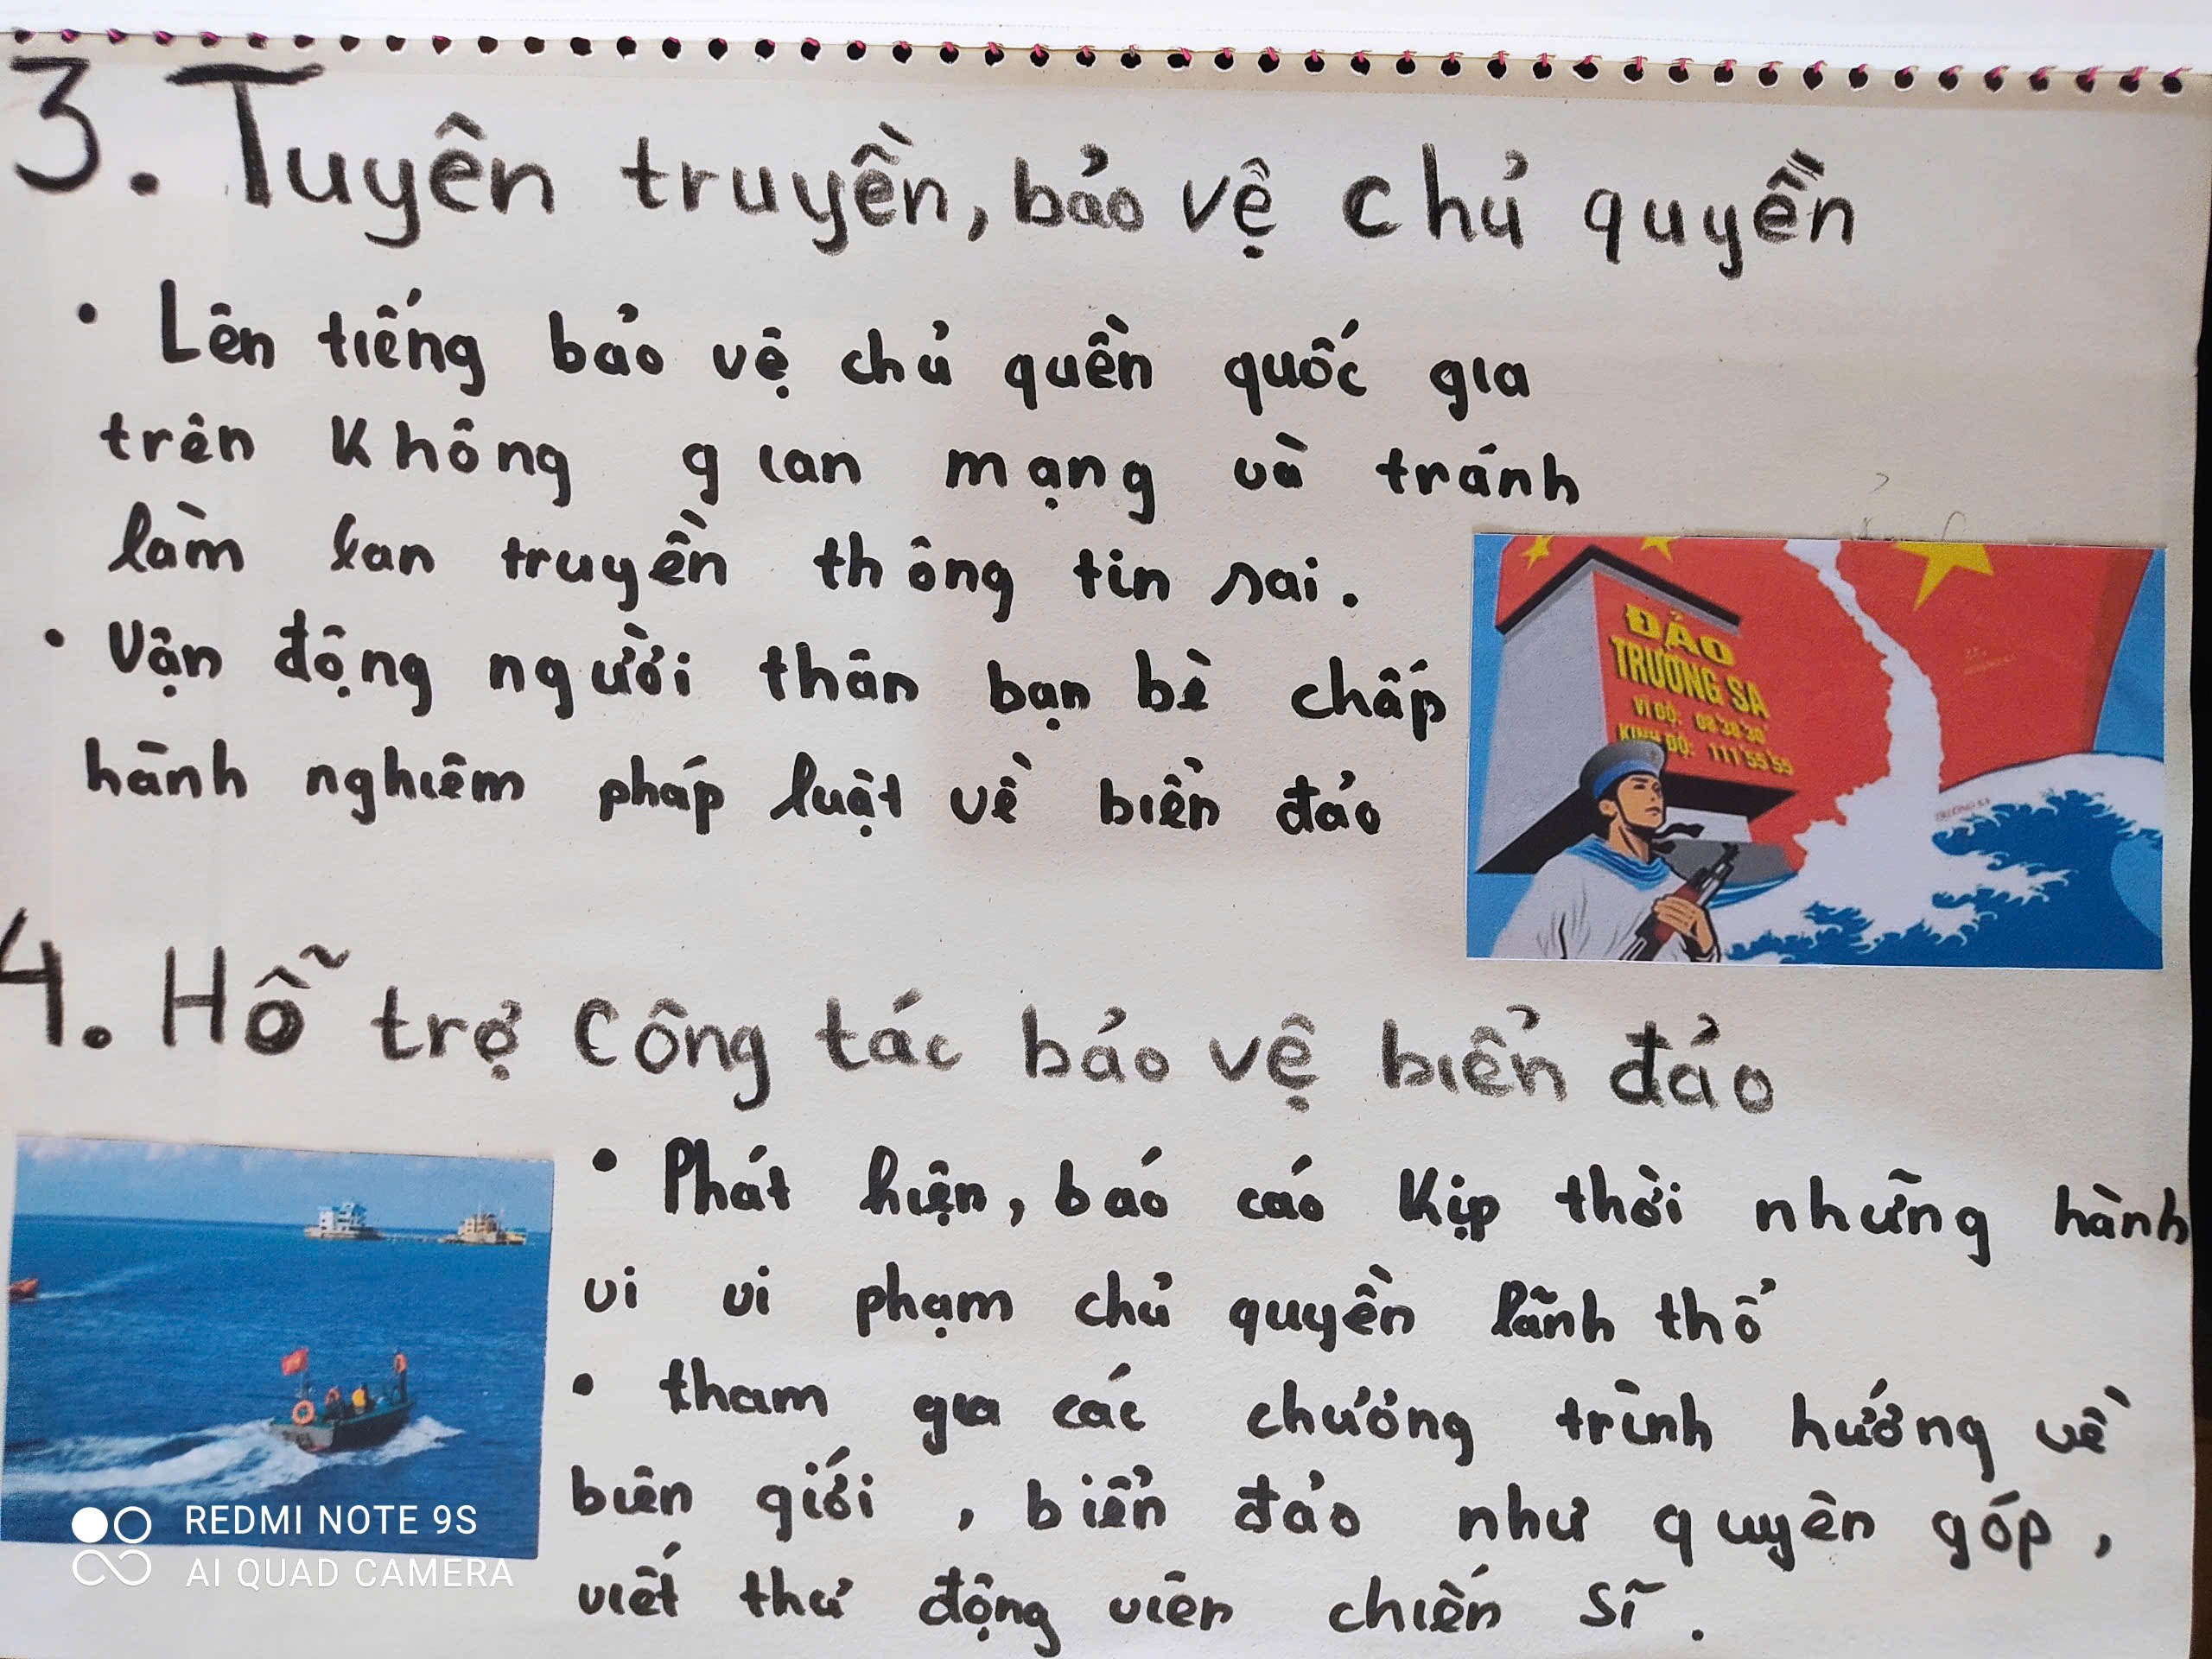 3. Tuyên truyền, bảo vệ chủ quyền
• Lên tiếng bảo vệ chủ quền quốc gia
trên không gian mạng và tránh
làm lan truyền thông tin sai.
• Vận động người thân bạn bè chấp
hành nghiêm pháp luật về biển đảo
ĐẢO
TRƯỜNG SA
VĨ ĐỘ: 08°38'30"
KINH ĐỘ: 111°55'55
TRƯỜNG SA
4. Hỗ trợ công tác bảo vệ biển đảo
• Phát hiện, báo cáo kịp thời những hành
vi vi phạm chủ quyền lãnh thổ
• tham gia các chương trình hướng về
biên giới, biển đảo như quyên góp,
viết thư động viên chiến sĩ.
REDMI NOTE 9S
AI QUAD CAMERA